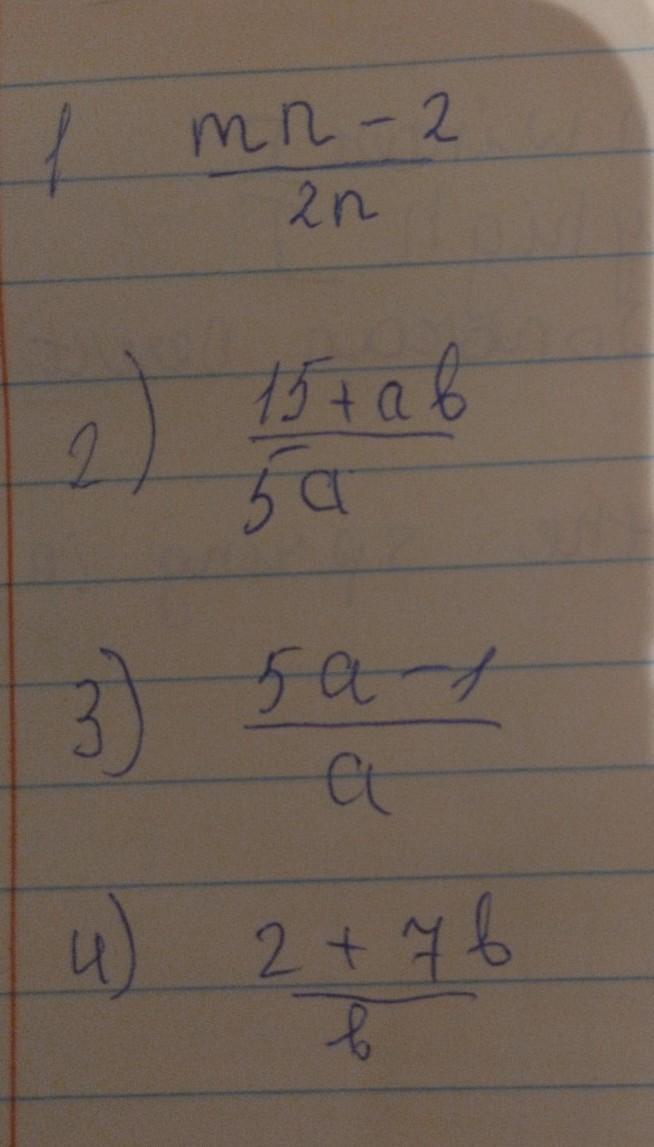 1 mn - 2
2n
2) 15 + ab
5a
3) 5a - 1
a
4) 2 + 7b
b